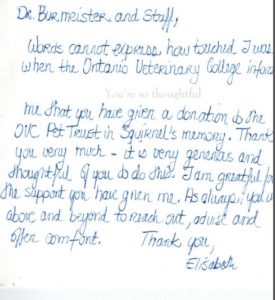 Dr. Burmeister and Staff,
Words cannot express how touched I was
when the Ontario Veterinary College infor
You're so thoughtful
me that you have given a donation to the
OVC Pet Trust in Squirrel's memory. Thank
you very much - it is very generous and
thoughtful of you to do this. I am greatful for
the support you have given me. As always, you
above and beyond to reach out, advise and
offer comfort. Thank you,
Elisabeth